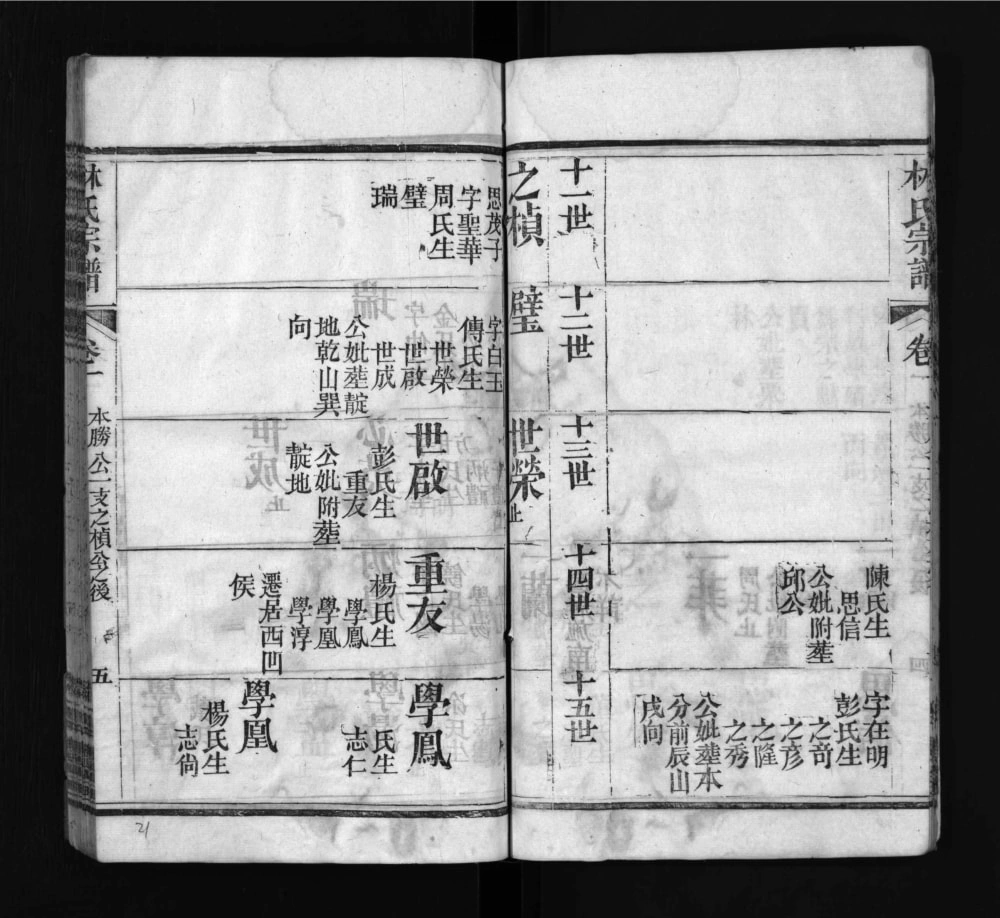 林氏宗譜
卷一
陳氏生
思信
公妣附塟
邱公
字在明
彭氏生
之奇
之彥
之隆
之秀
公妣塟本
分前辰山
戌向
十一世
十二世
十三世
十四世
十五世
之楨
思茂子
字聖華
周氏生
璧
瑞
璧
字白玉
傅氏生
世榮
世啟
世成
公妣塟靛
地乾山巽
向
世榮止
世啟
彭氏生
重友
公妣附塟
靛地
重友
楊氏生
學鳳
學凰
學淳
遷居西凹
侯
學鳳
氏生
志仁
學凰
楊氏生
志尚
林氏宗譜
卷一
本勝公一支之楨公之後
五
21